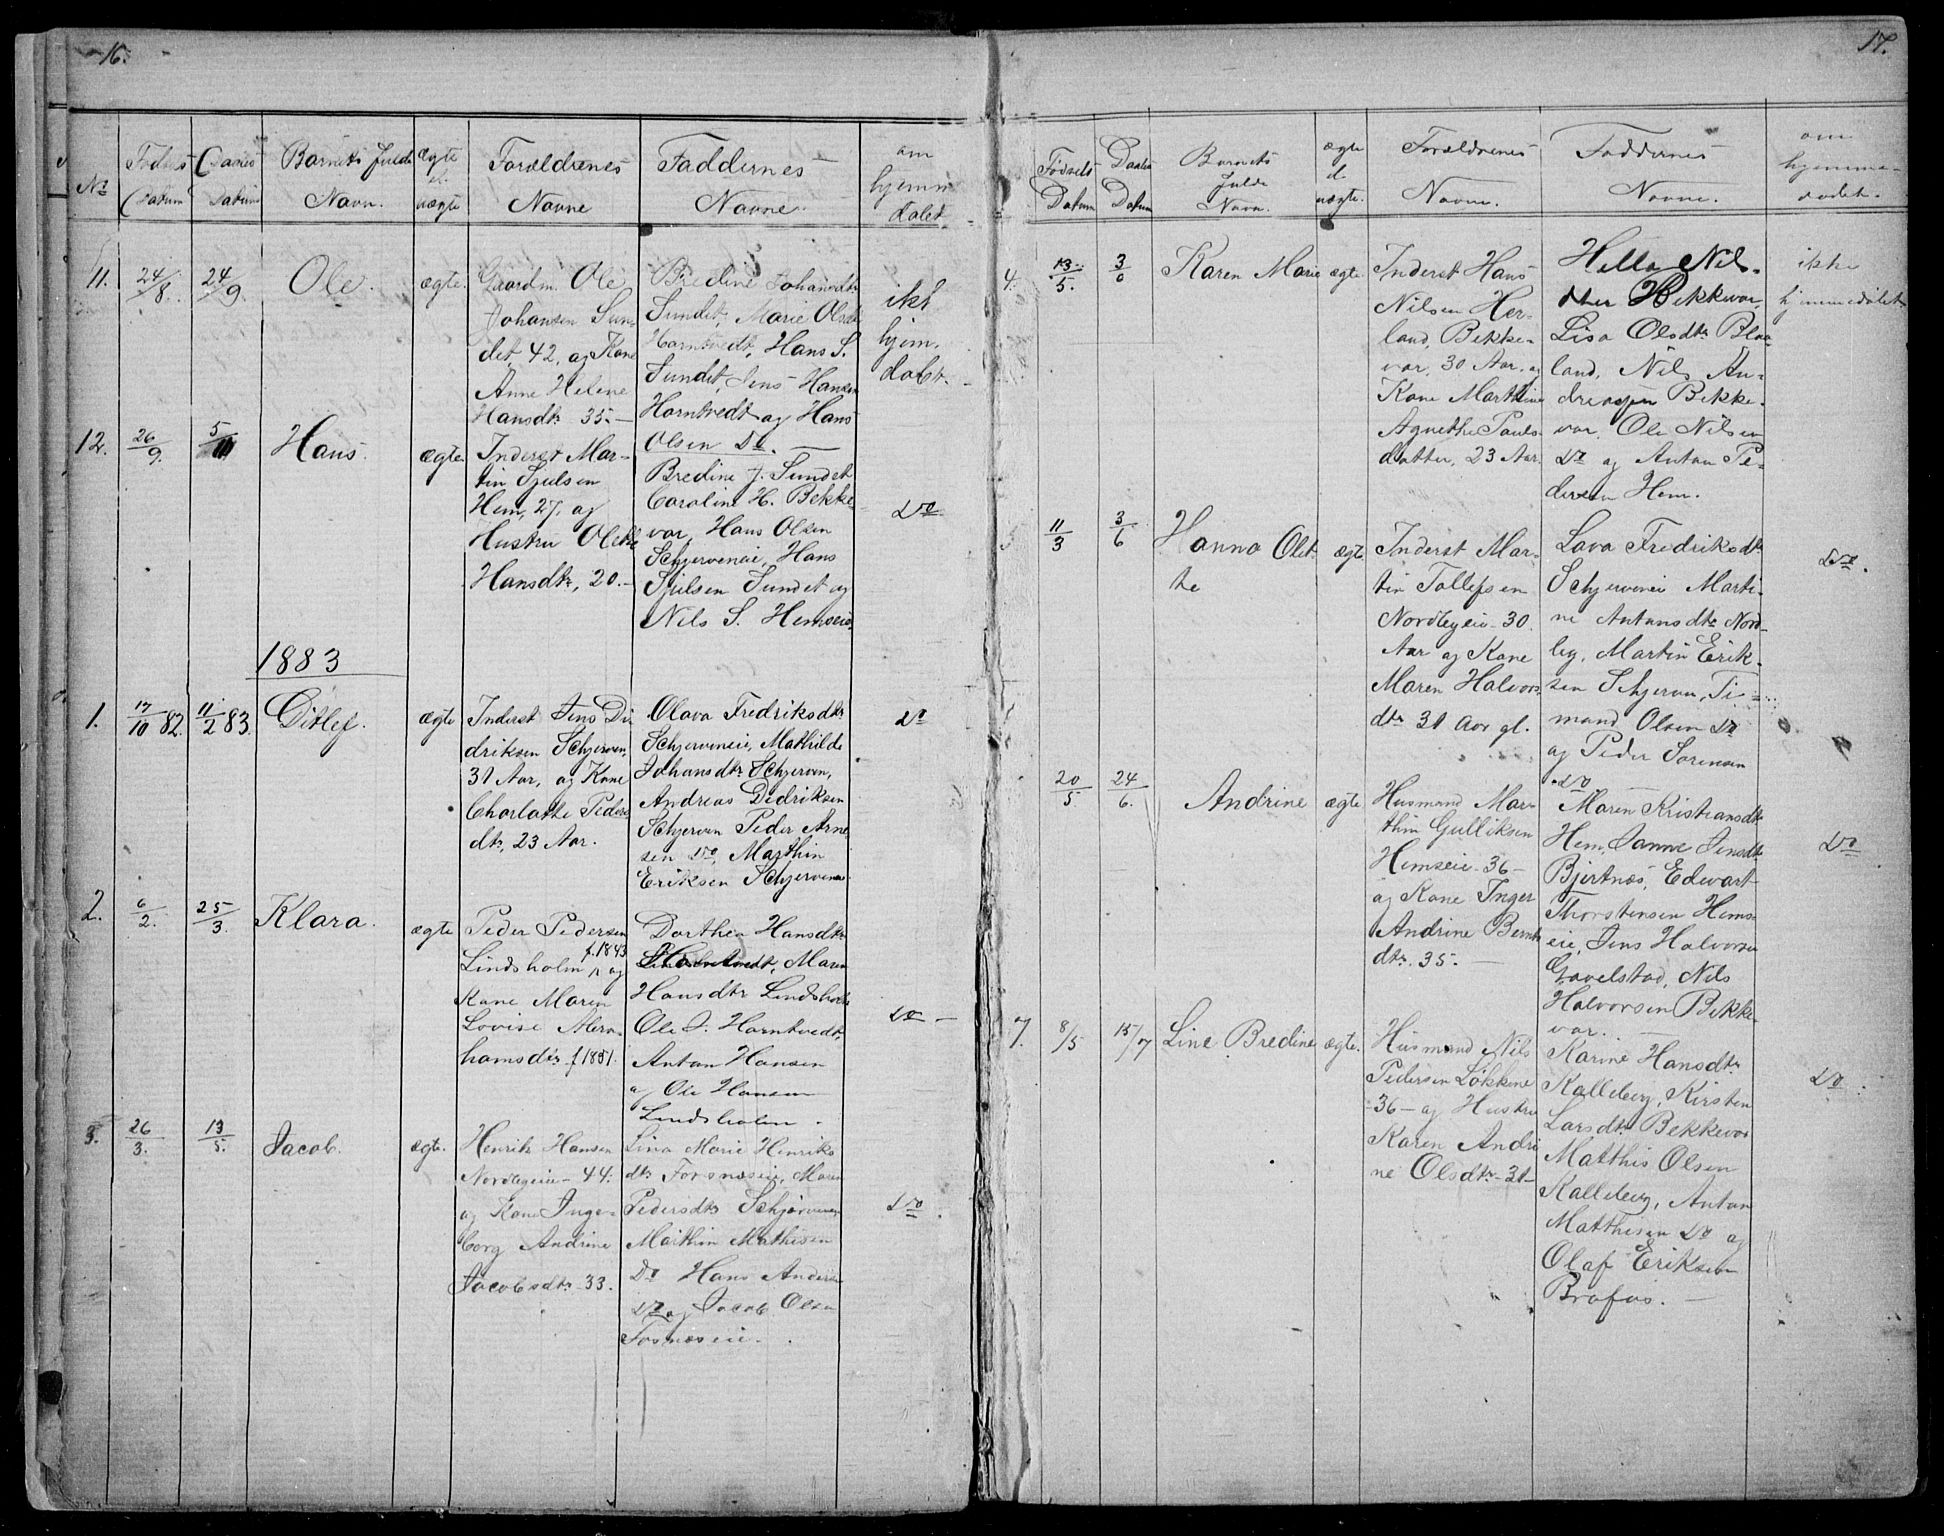 16.
Nr
Fødsels Datum
Daabs Datum
Barnets fulde Navn.
Ægte el. uægte
Forældrenes Navne
Faddernes Navne.
om hjemmedøbt
11.
24/8.
24/9.
Ole.
ægte.
Gaardm. Ole
Johansen Sun-
det, 42, og Kone
Anne Helene
Hansdtr 35.—
Bredine Johansdtr
Sundet, Marie Olsdtr
Horntvedt, Hans S.
Sundet, Jens Hansen
Horntvedt og Hans
Olsen Do. —
ikke
hjem.
døbt.
12.
26/9.
5/11
Hans.
ægte.
Inderst Mar-
tin Sjulsen
Hem, 27, og
Hustru Olette
Hansdtr, 20.—
Bredine J. Sundet
Caroline H. Bekke-
var, Hans Olsen
Schjerveneie, Hans
Sjulsen Sundet og
Nils S. Hemseie.
Do
1883
1.
17/10 82.
11/2 83.
Ditlef.
ægte
Inderst Jens Di
driksen Schjerven,
31 Aar, og Kone
Charlotte Peders
dtr, 23 Aar.
Olava Fredriksdtr
Schjerveneie, Mathilde
Johansdtr Schjerven,
Andreas Didriksen
Schjerven Peder Arne
sen Do, Marthin
Eriksen Schjervene
Do
2.
6/2.
25/3.
Klara.
ægte
Peder Pedersen
f. 1843
Lindsholm og
Kone Maren
Lovise Abra-
hamsdtr f 1851.
Dorthea Hansdtr
Horntvedt, Maren
Hansdtr Lindsholm
Ole J. Horntvedt,
Anton Hansen
og Ole Hansen
Lindsholm.
Do —
3.
26/3.
13/5.
Jacob.
ægte.
Henrik Hansen
Nordbyeie - 44.
og Kone Inge-
borg Andrine
Jacobsdtr 33.
Lina Marie Henriks
dtr Forsnæseie, Maren
Pedersdtr Schjerven
Marthin Mathisen
Do Hans Anders
Do og Jacob Olsen
Fosnæseie.
Do.
17.
Fødsels Datum
Daabs Datum
Barnets fulde Navn.
ægte el uægte.
Forældrenes Navne.
Faddernes Navne.
om hjemme-døbt.
4.
13/5.
3/6
Karen Marie
ægte
Inderst Hans
Nilsen Her-
land, Bekke-
var, 30 Aar, og
Kone Marthine
Agnethe Pauls-
datter, 23 Aar.
Hella Nils-
dtter Bekkevar
Lisa Olsdtr Blaa-
land, Nils An-
dreasen Bekke-
var, Ole Nilsen
Do og Anton Pe-
dersen Hem.
ikke
hjemmedøbt
11/3
3/6
Hanna Olet-
te
ægte
Inderst Mar-
tin Tollefsen
Nordbyeie - 30.
Aar og Kone
Maren Halvors
dtr 31 Aar gl.
Lava Fredriksdtr
Schjervenei Marti-
ne Antonsdtr Nord-
by, Martin Erik-
sen Schjerven, Ti-
mand Olsen Do
og Peder Sørensen
Do
Do.
20/5.
24/6.
Andrine
ægte
Husmand Mar-
thin Gulliksen
Hemseie - 36 -
og Kone Inger
Andrine Bernts
dtr. 35. —
Maren Kristiansdtr
Hem, Janne Jensdtr
Bjertnæs, Edvart
Thorstensen Hems-
eie, Jens Halvorsen
Gavelstad, Nils
Halvorsen Bekke-
var. —
Do
7.
8/5
15/7
Line Bredine
ægte.
Husmand Nils
Pedersen Løkkene
36 - og Hustru
Karen Andri
ne Olsdtr - 31-
Karine Hansdtr
Kalleberg, Kirsten
Larsdtr Bekkevar
Matthis Olsen
Kalleberg, Anton
Matthisen Do og
Olaf Eriksen
Brofos. —
Do.